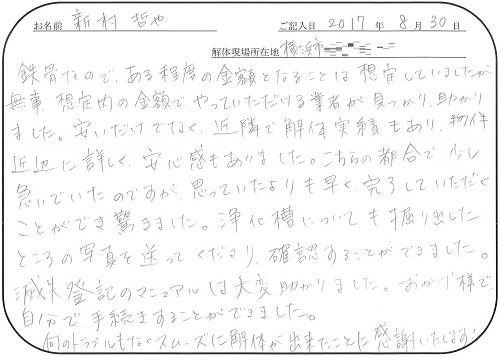 お名前 新村 哲也 ご記入日 2017 年 8 月 30 日
解体現場所在地 横浜市
鉄骨なので、ある程度の金額となることは想定していましたが
無事、想定内の金額で、やっていただける業者が見つかり、助かり
ました。安いだけでなく、近隣で解体実績もあり、物件
近辺に詳しく、安心感もありました。こちらの都合で少し
急いでいたのですが、思っていたよりも早く、完了していただく
ことができ驚きました。浄化槽についても掘り出した
ところの写真を送ってくださり、確認することができました。
滅失登記のマニュアルは大変助かりました。おかげ様で、
自分で手続きすることができました。
何のトラブルもなくスムーズに解体が出来たことに感謝いたします!